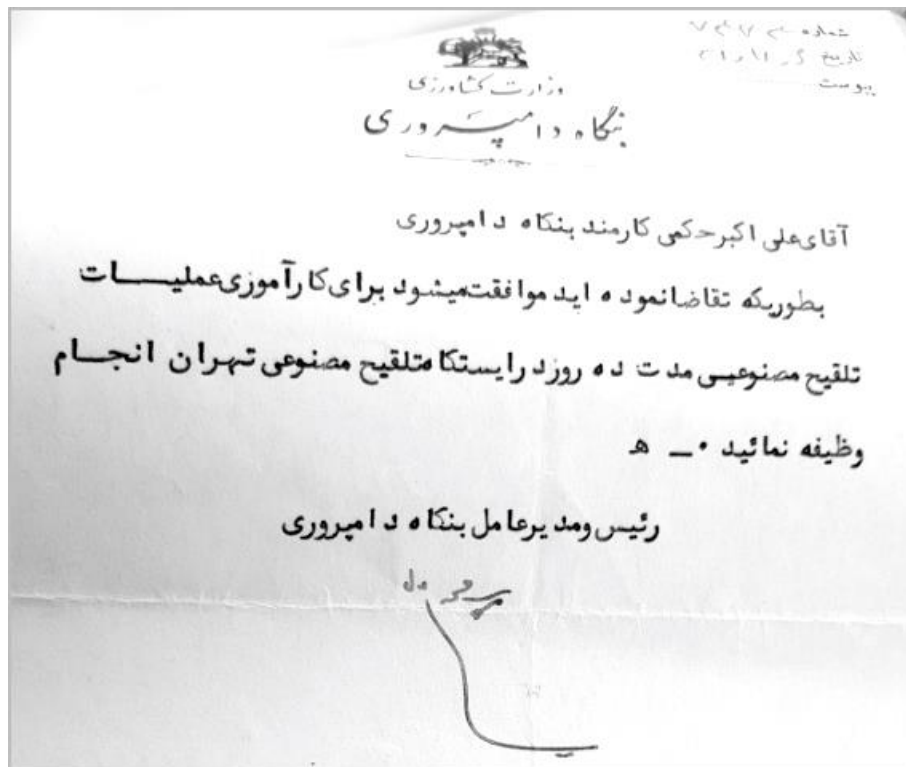 شماره
تاریخ
پیوست
وزارت کشاورزی
بنگاه دامپروری
آقای علی اکبر حکمی کارمند بنگاه دامپروری
بطوریکه تقاضا نموده اید موافقت میشود برای کارآموزی عملیات
تلقیح مصنوعی مدت ده روز در ایستگاه تلقیح مصنوعی تهران انجام
وظیفه نمائید ۰ـ ه
رئیس و مدیر عامل بنگاه دامپروری